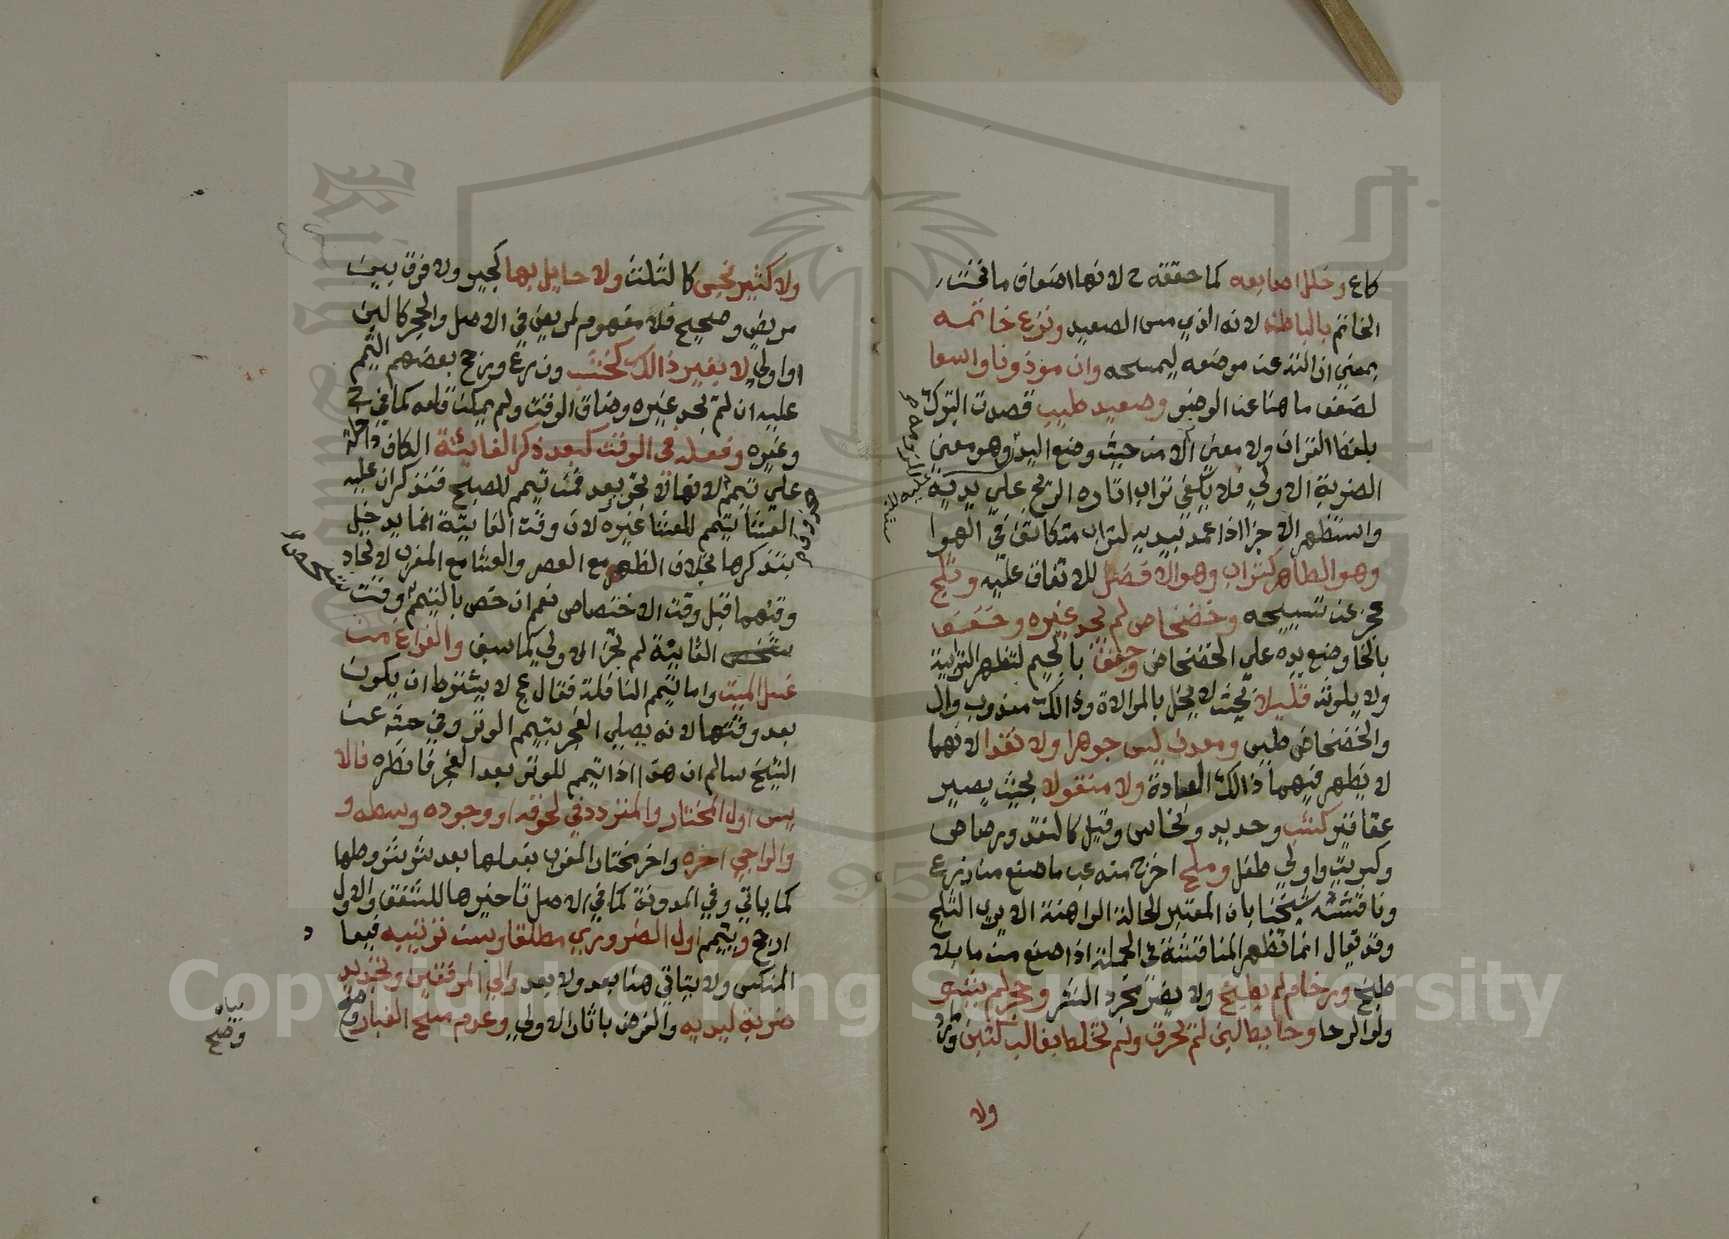 كاع وخلل اصابعه كما حققه ح لانها اضعاف ما تحت
الخاتم بالباطنه لانه الذي مس الصعيد ونزع خاتمه
بمعني ازالته عن موضعه ليمسحه وان موذونا واسعا
لضعف ما هنا عن الوضو وصعيد طيب قصدت التبرك
بلفظ القران ولا معني الا من حيث وضع اليد وهو معني
الضربة الاولي فلا يكفي تراب اثاره الريح علي يديه
واستظهر الاجزا اذا عمد بيديه لتراب متكاثف في الهوا
وهو الطاهر كتراب وهو الافضل للاتفاق عليه وثلج
عجز عن تسييحه وخضخاض لم يجد غيره وخفف
بالخا وضع يده علي الخضخاض وجفف بالجيم لتظهر الترابية
ولا يلوثه قليلا بحيث لا يخل بالموالاة وذالك مندوب وال
والخضخاض طين ومعدن ليس جوهرا ولا نقدا لانهما
لا يظهر فيهما ذالك العبادة ولا منقولا بحيث يصير
عقاقير كشب وحديد ونحاس وقيل كالنقد ورصاص
وكبريت واولي طفل وملح اخرج منه عب ما صنع من زرع
وناقشه شيخنا بان المعتبر الحالة الراهنة الا يري الثلج
وقد يقال انما تظهر المناقشة في الجملة اذا صنع من ما بلا
طبخ ورخام لم يطبخ ولا يضر مجرد النشر وحجر لم يشو
ولو الرحا وحايط لبن لم تحرق ولم تخلط بغالب كتبن
ولا
ولا كثير نجس كالثلث ولا حايل بها كجير ولا فرق بين
مريض وصحيح فلا مفهوم لمريض في الاصل والحجر كاللبن
او اولي لا بغير ذالك كخشب وزرع ورجح بعضهم التيمم
عليه ان لم يجد غيره وضاق الوقت ولم يمكن قلعه كما في ح
وغيره وفعله في الوقت كبعد ذكر الفائتة الكاف داخلة
علي تيمم لانها لا تجز بعد فمن تيمم للصبح فتذكر ان عليه
العشا يتيمم للعشا غيره لان وقت الفائتة انما يدخل
بتذكرها بخلاف الظهر مع العصر والعشا مع المغرب لاتحاد
وقتهما قبل وقت الاختصاص نعم ان خص بالتيمم وقت
الفائتة لم تجز الاولي كما سبق والفراغ من
غسل الميت واما تيمم النافلة فقال عج لا يشترط ان يكون
بعد وقتها لانه يصلي الفجر بتيمم الوتر وفي حقه عن
الشيخ سالم ان هذا اذا تيمم للوتر بعد الفجر فانظره فالا
يس اول المختار والمتردد في لحوقه او وجوده وسطه و
والراجي اخره واخر مختار المغرب بفعلها بعد شروطها
كما ياتي وفي المدونة كما في الاصل تاخيرها للشفق والاول
ارجح ويتيمم اول الضروري مطلقا وسن ترتيبه فيعا
المنكس ولا يتاتي هنا بعد ولا بعد والي المرفقين وتجديد
ضربة ليديه والفرض باثار الاولي وعدم مسح الغبار وصح
بيان
وضح